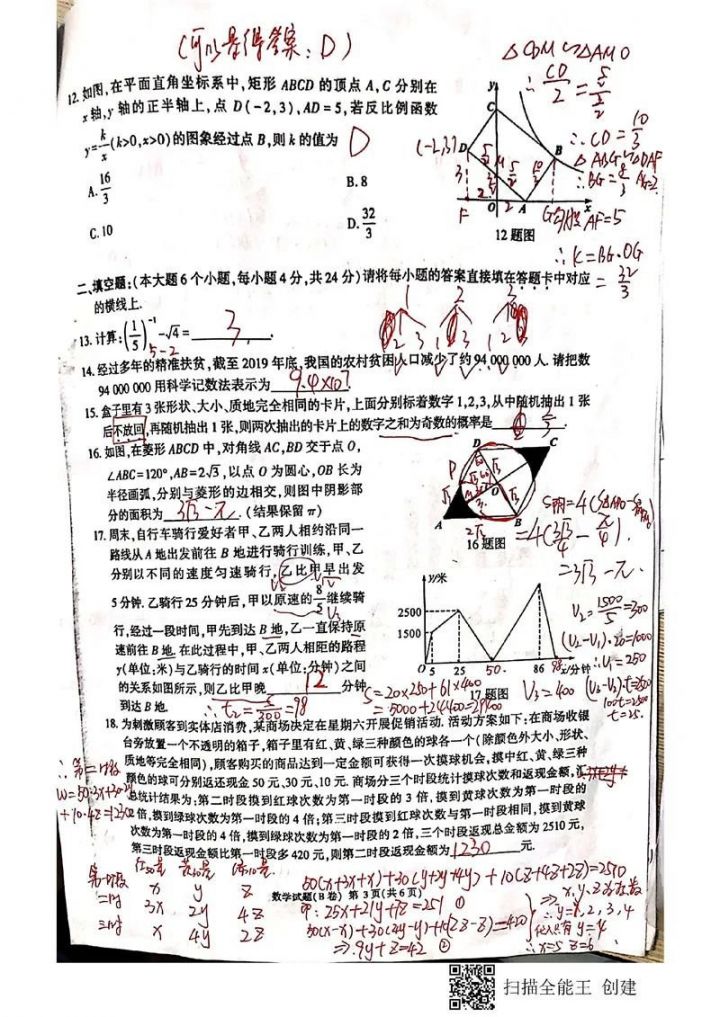 (可以看得答案:D)
△CDM∽△AMO
12.如图,在平面直角坐标系中,矩形 ABCD 的顶点 A,C 分别在
x 轴,y 轴的正半轴上,点 D(-2,3),AD=5,若反比例函数
y=k/x(k>0,x>0)的图象经过点 B,则 k 的值为 D
A.16/3 B.8
C.10 D.32/3
(-2,3)
y
C
D
B
F O A G x
12 题图
∴CD=10/3
AF=5
∴K=BG·OG
=32/3
二、填空题:(本大题 6 个小题,每小题 4 分,共 24 分)请将每小题的答案直接填在答题卡中对应
的横线上.
13.计算:(1/5)⁻¹-√4= 3 .
5-2
14.经过多年的精准扶贫,截至 2019 年底,我国的农村贫困人口减少了约 94 000 000 人.请把数
94 000 000 用科学记数法表示为 9.4×10⁷ .
15.盒子里有 3 张形状、大小、质地完全相同的卡片,上面分别标着数字 1,2,3,从中随机抽出 1 张
后不放回,再随机抽出 1 张,则两次抽出的卡片上的数字之和为奇数的概率是 2/3 .
16.如图,在菱形 ABCD 中,对角线 AC,BD 交于点 O,
∠ABC=120°,AB=2√3,以点 O 为圆心,OB 长为
半径画弧,分别与菱形的边相交,则图中阴影部
分的面积为 3√3-π .(结果保留 π)
D C
O
A B
2√3
16 题图
=3√3-π.
17.周末,自行车骑行爱好者甲、乙两人相约沿同一
路线从 A 地出发前往 B 地进行骑行训练,甲、乙
分别以不同的速度匀速骑行,乙比甲早出发
5 分钟.乙骑行 25 分钟后,甲以原速的 8/5 继续骑
行,经过一段时间,甲先到达 B 地,乙一直保持原
速前往 B 地.在此过程中,甲、乙两人相距的路程
y(单位:米)与乙骑行的时间 x(单位:分钟)之间
的关系如图所示,则乙比甲晚 12 分钟
到达 B 地.
y/米
2500
1500
O 5 25 50 86 98 x/分钟
17 题图
V₂=1500/5=300
(V₂-V₁)·20=1000
∴V₁=250
V₃=400
(V₃-V₂)·t=2500
100t=2500
t=25.
S=20×250+61×400
=5000+24400=29400
18.为刺激顾客到实体店消费,某商场决定在星期六开展促销活动.活动方案如下:在商场收银
台旁放置一个不透明的箱子,箱子里有红、黄、绿三种颜色的球各一个(除颜色外大小、形状、
质地等完全相同),顾客购买的商品达到一定金额可获得一次摸球机会,摸中红、黄、绿三种
颜色的球可分别返还现金 50 元、30 元、10 元.商场分三个时段统计摸球次数和返现金额,汇
总统计结果为:第二时段摸到红球次数为第一时段的 3 倍,摸到黄球次数为第一时段的
2 倍,摸到绿球次数为第一时段的 4 倍;第三时段摸到红球次数与第一时段相同,摸到黄球
次数为第一时段的 4 倍,摸到绿球次数为第一时段的 2 倍,三个时段返现总金额为 2510 元,
第三时段返现金额比第一时段多 420 元,则第二时段返现金额为 1230 元.
∴第二时段
第一时段 x y z
二时 3x 2y 4z
三时 x 4y 2z
50(x+3x+x)+30(y+2y+4y)+10(z+4z+2z)=2510
25x+21y+7z=251 ①
50(x-x)+30(4y-y)+10(2z-z)=420
⇒9y+z=42 ②
∴x=5 z=6
数学试题(B 卷) 第 3 页(共 6 页)
扫描全能王 创建